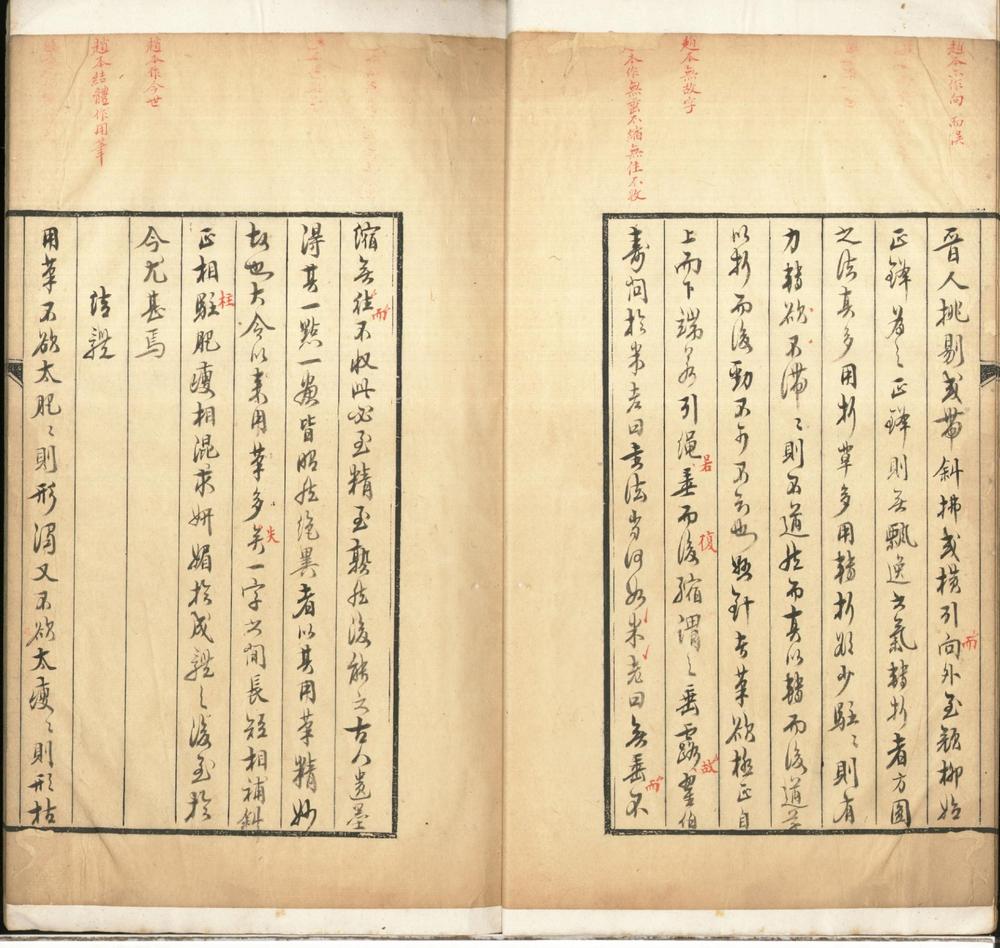 趙本亦作向而誤
趙本無故字
本作無垂不縮無往不收
晉人挑剔或帶斜拂或橫引向外至顔柳始
而
正鋒為之正鋒則無飄逸之氣轉折者方圓
之法真多用折草多用轉折欲少駐〻則有
力轉欲不滯〻則不遒然而真以轉而後遒草
以折而後勁不可不知也懸針者筆欲極正自
上而下端若引繩垂而後縮謂之垂露翟伯
若
復
故
壽問於米老曰書法當何如米老曰無垂不
而
趙本作今世
趙本結體作用筆
縮無往不收此必至精至熟然後能之古人遺墨
而
得其一點一畫皆昭然絕異者以其用筆精妙
故也大令以來用筆多矣一字之間長短相補斜
失
正相駐肥瘦相混求妍媚於成體之後至於
柱
今尤甚焉
結體
用筆不欲太肥〻則形濁又不欲太瘦〻則形枯